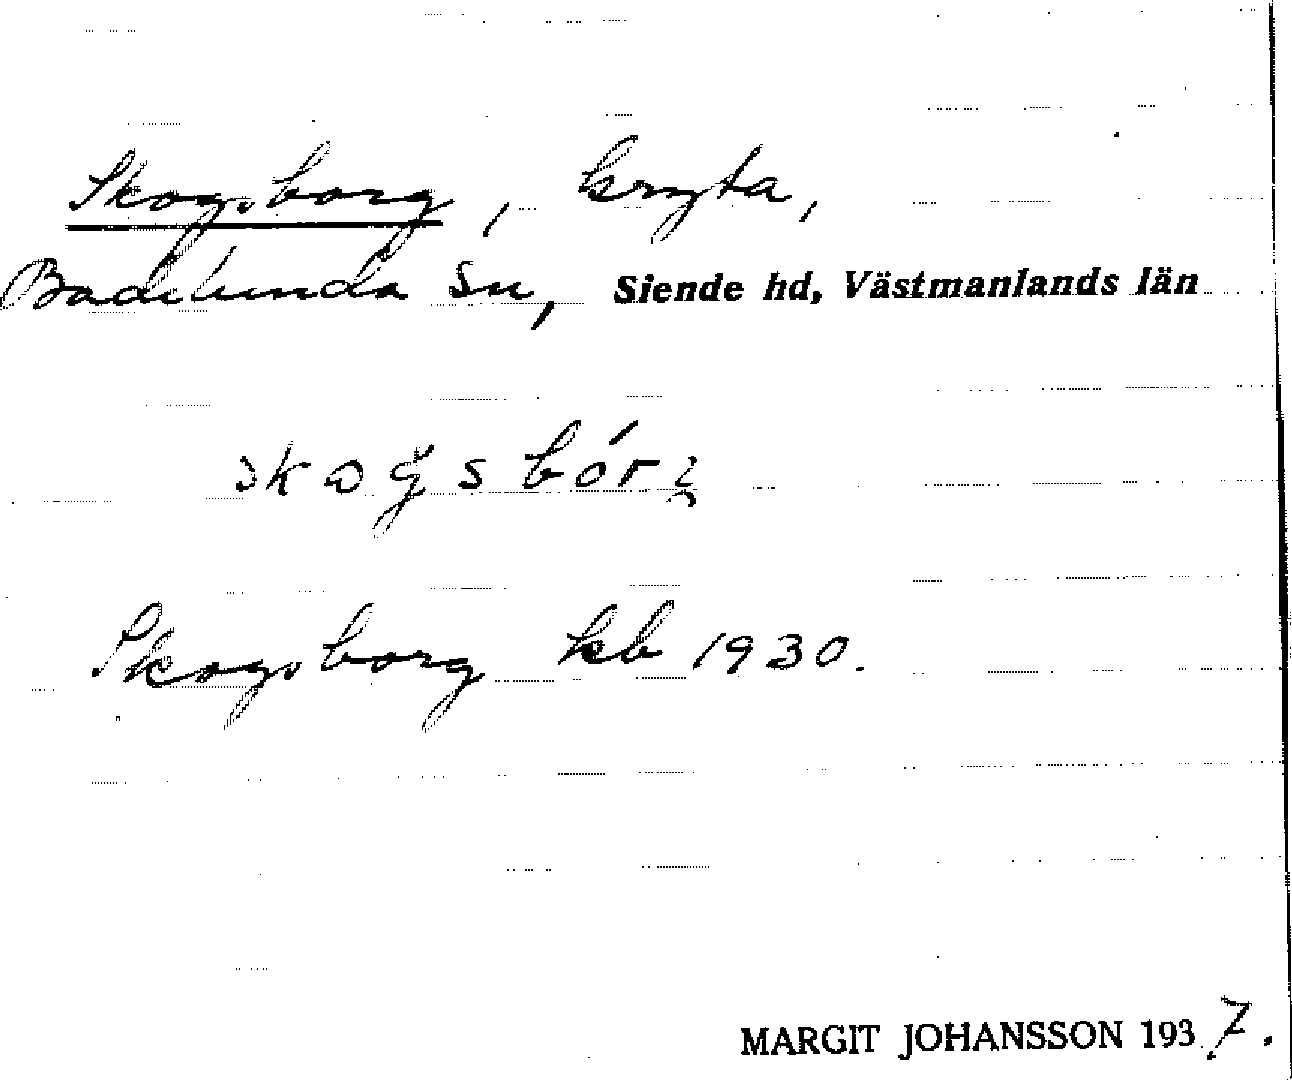 Skogsborg, kryta,
Badelunda sn, Siende hd, Västmanlands län
Skogsborg kb 1930.
MARGIT JOHANSSON 1937.